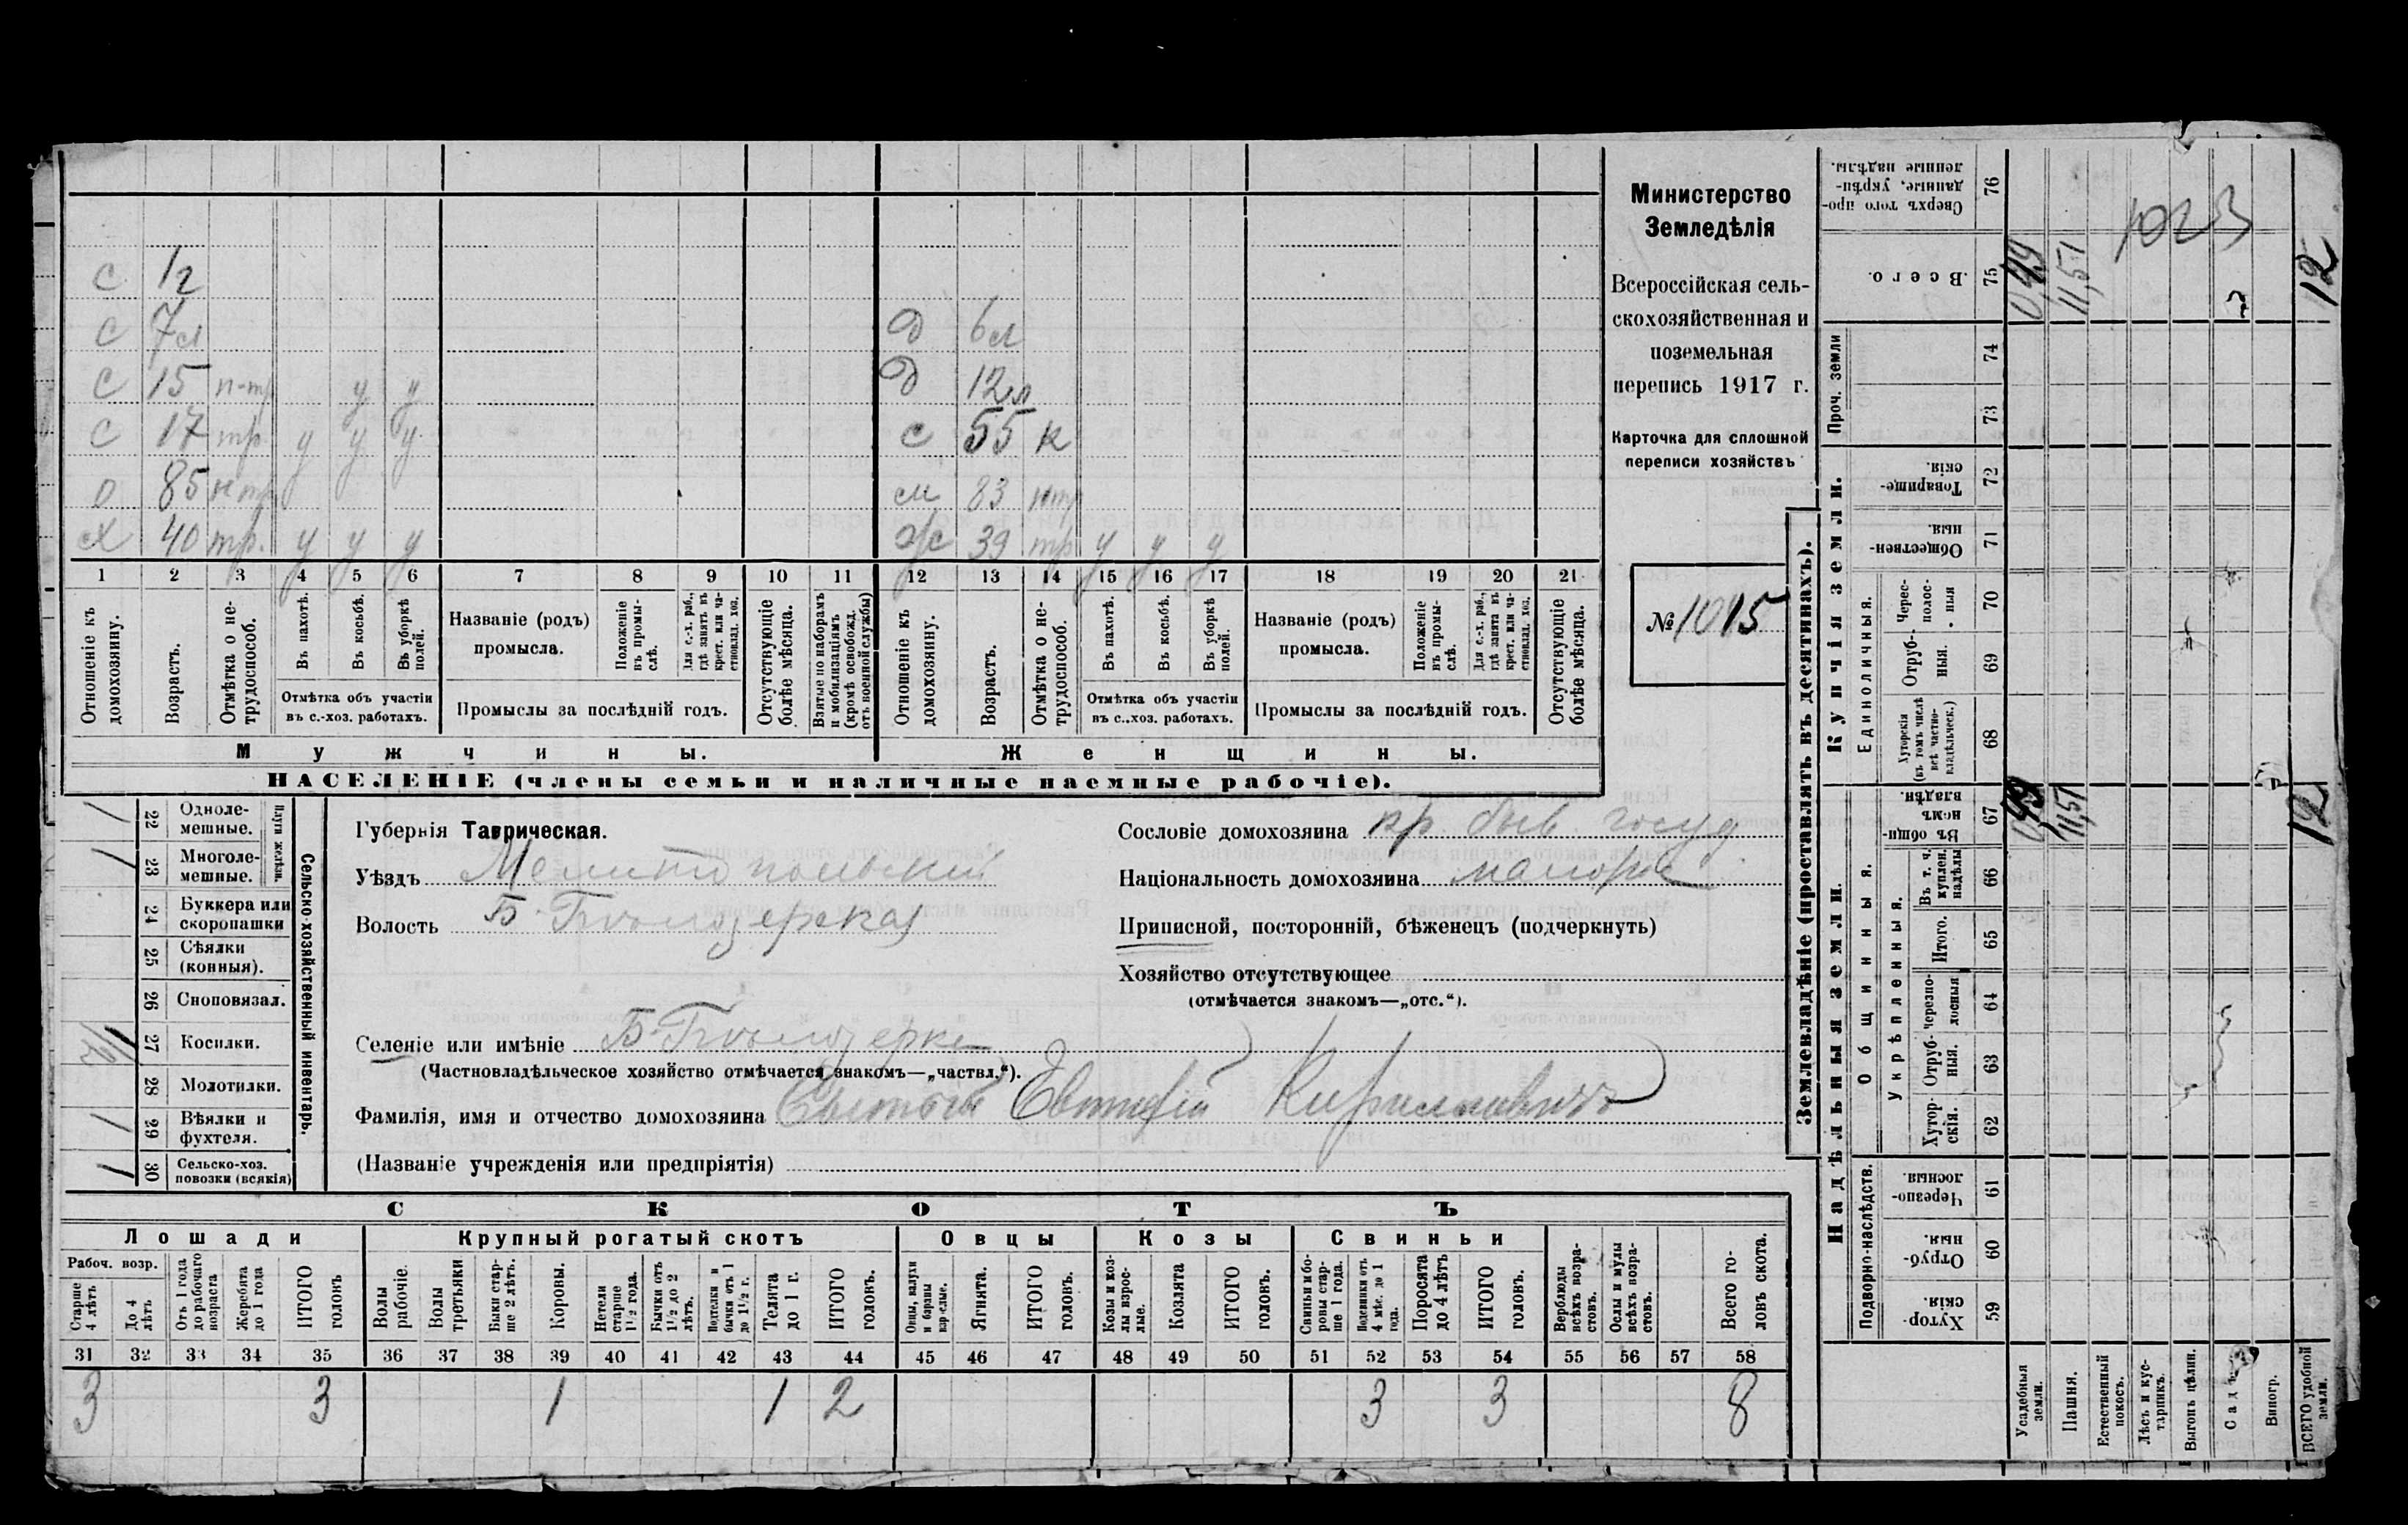 Министерство
Земледѣлія
Всероссійская сель-
скохозяйственная и
поземельная
перепись 1917 г.
Карточка для сплошной
переписи хозяйствъ
№ 1015
с 1г
с 7л
с 15 п-тр у у
с 17 тр. у у у
о 85 нтр
х 40 тр. у у у
д 6л
д 12л
с 55 к
м 83 нтр
ж 39 тр у у у
1 2 3 4 5 6 7 8 9 10 11 12 13 14 15 16 17 18 19 20 21
Отношеніе къ домохозяину.
Возрастъ.
Отмѣтка о не-трудоспособ.
Въ пахотѣ.
Въ косьбѣ.
Въ уборкѣ полей.
Отмѣтка объ участіи
въ с.-хоз. работахъ.
Названіе (родъ)
промысла.
Положеніе въ промы-слѣ.
Для с.-х. раб., гдѣ занятъ въ крест. или ча-стновлад. хоз.
Промыслы за послѣдній годъ.
Отсутствующіе болѣе мѣсяца.
Взятые по наборамъ и мобилизаціямъ (кромѣ освобожд. отъ военной службы)
Отношеніе къ домохозяину.
Возрастъ.
Отмѣтка о не-трудоспособ.
Въ пахотѣ.
Въ косьбѣ.
Въ уборкѣ полей.
Отмѣтка объ участіи
въ с.-хоз. работахъ.
Названіе (родъ)
промысла.
Положеніе въ промы-слѣ.
Для с.-х. раб., гдѣ занята въ крест. или ча-стновлад. хоз.
Промыслы за послѣдній годъ.
Отсутствующіе болѣе мѣсяца.
Мужчины.
Женщины.
НАСЕЛЕНІЕ (члены семьи и наличные наемные рабочіе).
Сельско-хозяйственный инвентарь.
Плуги желѣзн.
22 Одноле-мешные. 1
23 Многоле-мешные. 1
24 Буккера или скоропашки
25 Сѣялки (конныя).
26 Сноповязал.
27 Косилки. 1/2
28 Молотилки.
29 Вѣялки и фухтеля. 1
30 Сельско-хоз. повозки (всякія) 1
Губернія Таврическая.
Уѣздъ Мелитопольскій
Волость Б. Бѣлозерская
Селеніе или имѣніе Б. Бѣлозерка
(Частновладѣльческое хозяйство отмѣчается знакомъ—„частвл.“).
Фамилія, имя и отчество домохозяина Евтифій Кирилловичъ
(Названіе учрежденія или предпріятія)
Сословіе домохозяина кр. быв. госуд.
Національность домохозяина малорос
Приписной, посторонній, бѣженецъ (подчеркнуть)
Хозяйство отсутствующее
(отмѣчается знакомъ—„отс.“).
СКОТЪ
Лошади
Крупный рогатый скотъ
Овцы
Козы
Свиньи
Рабоч. возр.
Старше 4 лѣтъ
До 4 лѣтъ
Отъ 1 года до рабочаго возраста
Жеребята до 1 года
ИТОГО головъ
Волы рабочіе.
Волы третьяки
Быки стар-ше 2 лѣтъ.
Коровы.
Нетели старше 1½ года.
Бычки отъ 1½ до 2 лѣтъ.
Подтелки и бычки отъ 1 до 1½ г.
Телята до 1 г.
ИТОГО головъ.
Овцы, валухи и бараны взрослые.
Ягнята.
ИТОГО головъ.
Козы и коз-лы взрос-лые.
Козлята
ИТОГО головъ.
Свиньи и бо-ровы стар-ше 1 года.
Подсвинки отъ 4 мѣс. до 1 года.
Поросята до 4 лѣтъ
ИТОГО головъ.
Верблюды всѣхъ возра-стовъ.
Ослы и мулы всѣхъ возра-стовъ.
Всего го-ловъ скота.
31 32 33 34 35 36 37 38 39 40 41 42 43 44 45 46 47 48 49 50 51 52 53 54 55 56 57 58
3 3 1 1 2 3 3 8
Землевладѣніе (проставлять въ десятинахъ).
Надѣльныя земли.
Купчія земли.
Проч. земли
Подворно-наслѣдств.
Общинныя.
Укрѣпленныя.
Единоличныя.
Хутор-скія. 59
Отруб-ныя. 60
Черезпо-лосныя 61
Хутор-скія. 62
Отруб-ныя. 63
Черезпо-лосныя 64
Итого. 65
Въ т. ч. куплен. надѣлы 66
Въ общи-номъ владѣн. 67
Хуторскія (въ томъ числѣ всѣ частно-владѣльческ.) 68
Отруб-ныя. 69
Черес-полос-ныя 70
Обществен-ныя. 71
Товарище-скія. 72
73
74
Всего. 75
Сверхъ того про-данные, укрѣп-ленные надѣлы. 76
Усадебныя земли. 0,49 0,49
Пашня. 11,51 11,51
Естественный покосъ.
Лѣсъ и кус-тарникъ.
Выгонъ цѣлин.
Садъ
Виногр.
ВСЕГО удобной земли. 12 12
1023